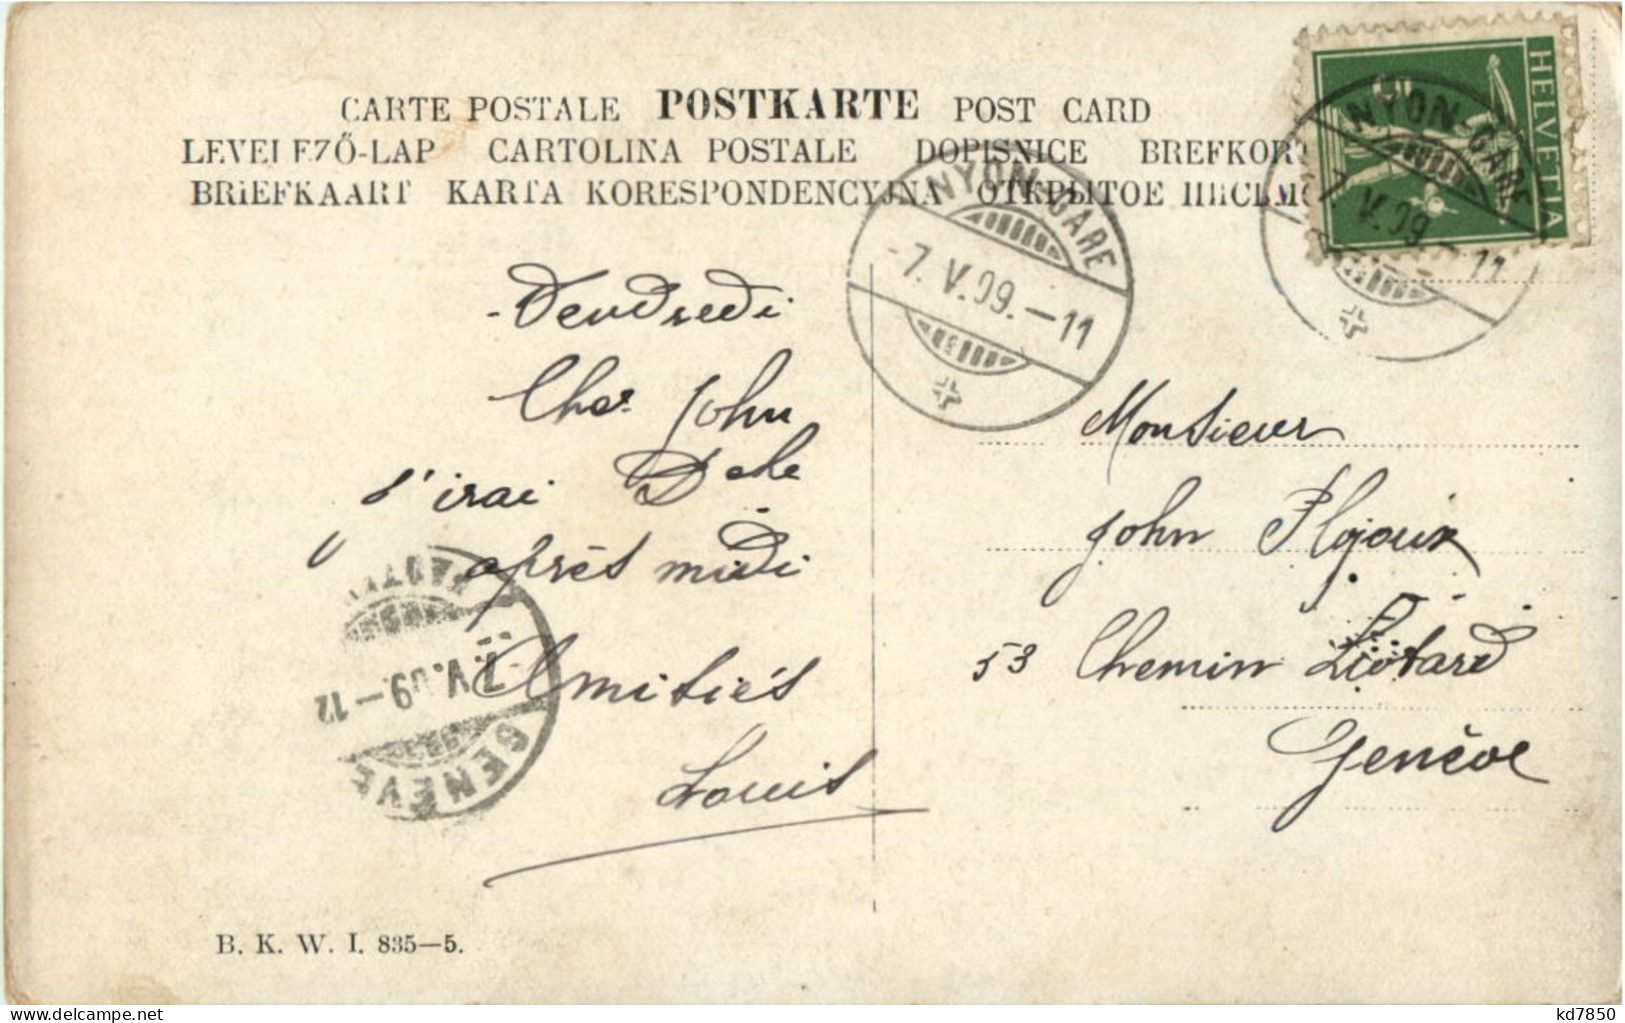 CARTE POSTALE POSTKARTE POST CARD
LEVELEZŐ-LAP CARTOLINA POSTALE DOPISNICE BREFKORT
BRIEFKAART KARTA KORESPONDENCYJNA ОТКРЫТОЕ ПИСЬМО
HELVETIA
NYON-GARE
7. V. 09. - 11
NYON-GARE
-7. V. 09. - 11
Vendredi
Cher John
J'irai
après midi
Amitiés
Louis
GENÈVE
7. V. 09 - 12
Monsieur
John
53 Chemin Liotard
Genève
B. K. W. I. 835-5.
kd7850